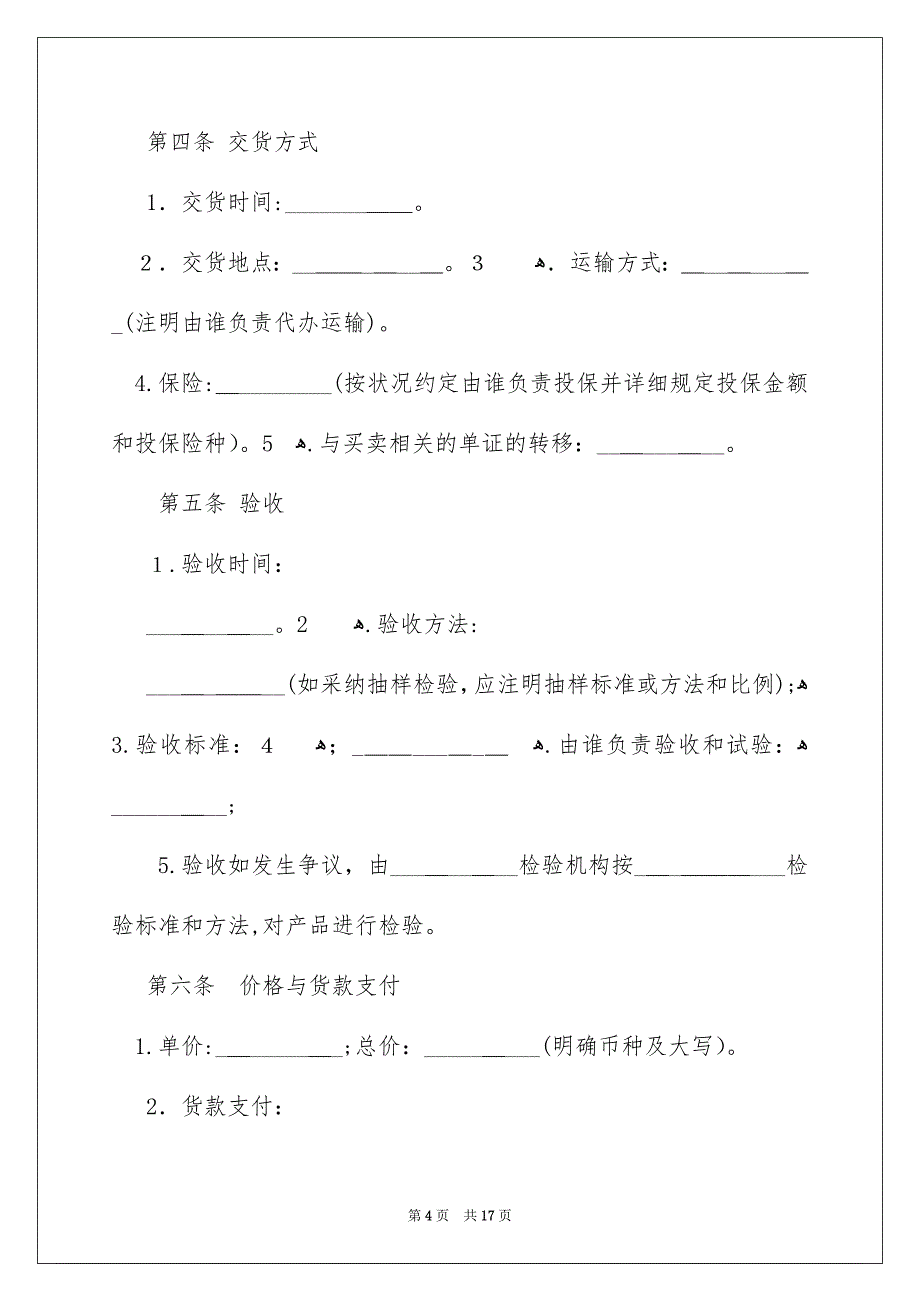 第四条 交货方式
1．交货时间:___________。
２．交货地点：_____________。３ ﻫ．运输方式：___________
_(注明由谁负责代办运输)。
4.保险:__________(按状况约定由谁负责投保并详细规定投保金额
和投保险种)。5 ﻫ.与买卖相关的单证的转移：___________。
第五条 验收
１.验收时间：
___________。2 ﻫ.验收方法：
____________(如采纳抽样检验,应注明抽样标准或方法和比例);ﻫ
3.验收标准：４ ﻫ；_____________ ﻫ.由谁负责验收和试验：ﻫ
__________;
5.验收如发生争议，由___________检验机构按_____________检
验标准和方法,对产品进行检验。
第六条　价格与货款支付
1.单价:___________;总价：__________(明确币种及大写)。
2．货款支付：
第 4 页　共 17 页